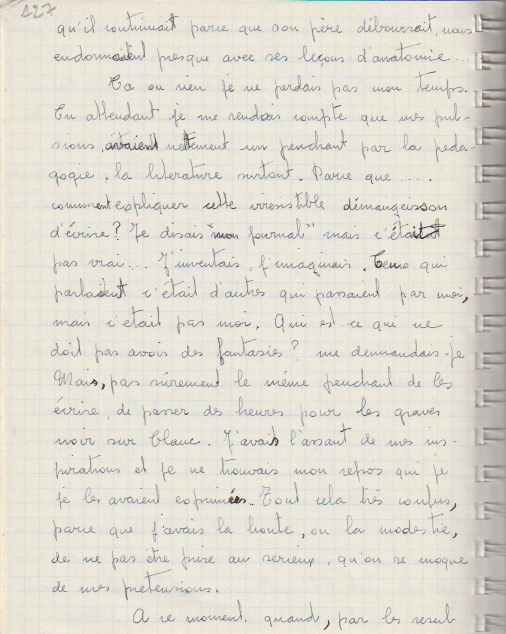 127
qu'il continuait parce que son père débourrait, nous
endormaient presque avec ses leçons d'anatomie...
Ça ou rien je ne perdais pas mon temps.
En attendant je me rendais compte que mes pul-
sions, avaient nettement un penchant par la peda-
gogie, la literature surtout. Parce que ....
comment expliquer cette irresistible démangeisson
d'écrire? Je disais "mon journal" mais c'était
pas vrai... J'inventais, j'imaginais. Ceux qui
parlaient c'était d'autres qui passaient par moi,
mais c'était pas moi. Qui est ce qui ne
doit pas avoir des fantasies? me demandais-je
Mais, pas sûrement le même penchant de les
écrire, de passer des heures pour les graver
noir sur blanc. J'avais l'assaut de mes ins-
pirations et je ne trouvais mon repos qui je
je les avaient exprimées. Tout cela très confus,
parce que j'avais la honte, ou la modestie,
de ne pas être prise au serieux, qu'on se moque
de mes pretensions.
A ce moment quand, par les resul